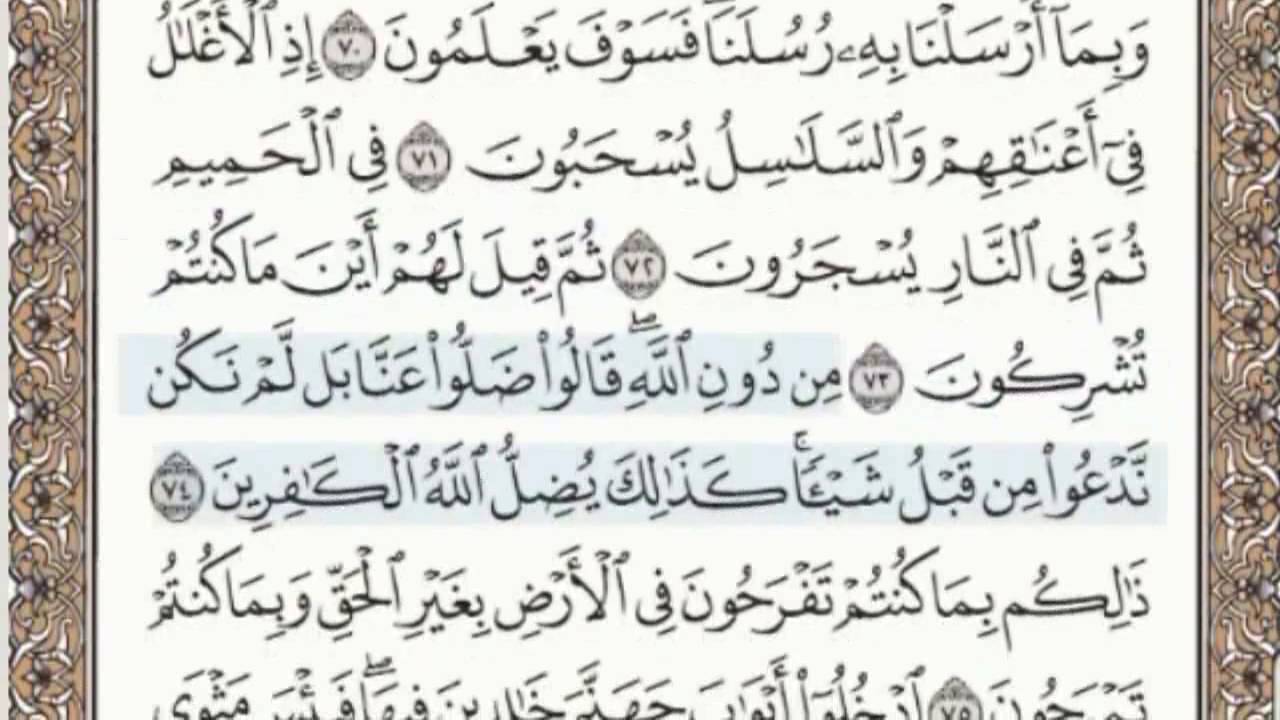 وَبِمَآ أَرۡسَلۡنَا بِهِۦ رُسُلَنَاۖ فَسَوۡفَ يَعۡلَمُونَ ٧٠ إِذِ ٱلۡأَغۡلَٰلُ
فِيٓ أَعۡنَٰقِهِمۡ وَٱلسَّلَٰسِلُ يُسۡحَبُونَ ٧١ فِي ٱلۡحَمِيمِ
ثُمَّ فِي ٱلنَّارِ يُسۡجَرُونَ ٧٢ ثُمَّ قِيلَ لَهُمۡ أَيۡنَ مَا كُنتُمۡ
تُشۡرِكُونَ ٧٣ مِن دُونِ ٱللَّهِۖ قَالُواْ ضَلُّواْ عَنَّا بَل لَّمۡ نَكُن
نَّدۡعُواْ مِن قَبۡلُ شَيۡـٔٗاۚ كَذَٰلِكَ يُضِلُّ ٱللَّهُ ٱلۡكَٰفِرِينَ ٧٤
ذَٰلِكُم بِمَا كُنتُمۡ تَفۡرَحُونَ فِي ٱلۡأَرۡضِ بِغَيۡرِ ٱلۡحَقِّ وَبِمَا كُنتُمۡ
تَمۡرَحُونَ ٧٥ ٱدۡخُلُوٓاْ أَبۡوَٰبَ جَهَنَّمَ خَٰلِدِينَ فِيهَاۖ فَبِئۡسَ مَثۡوَى